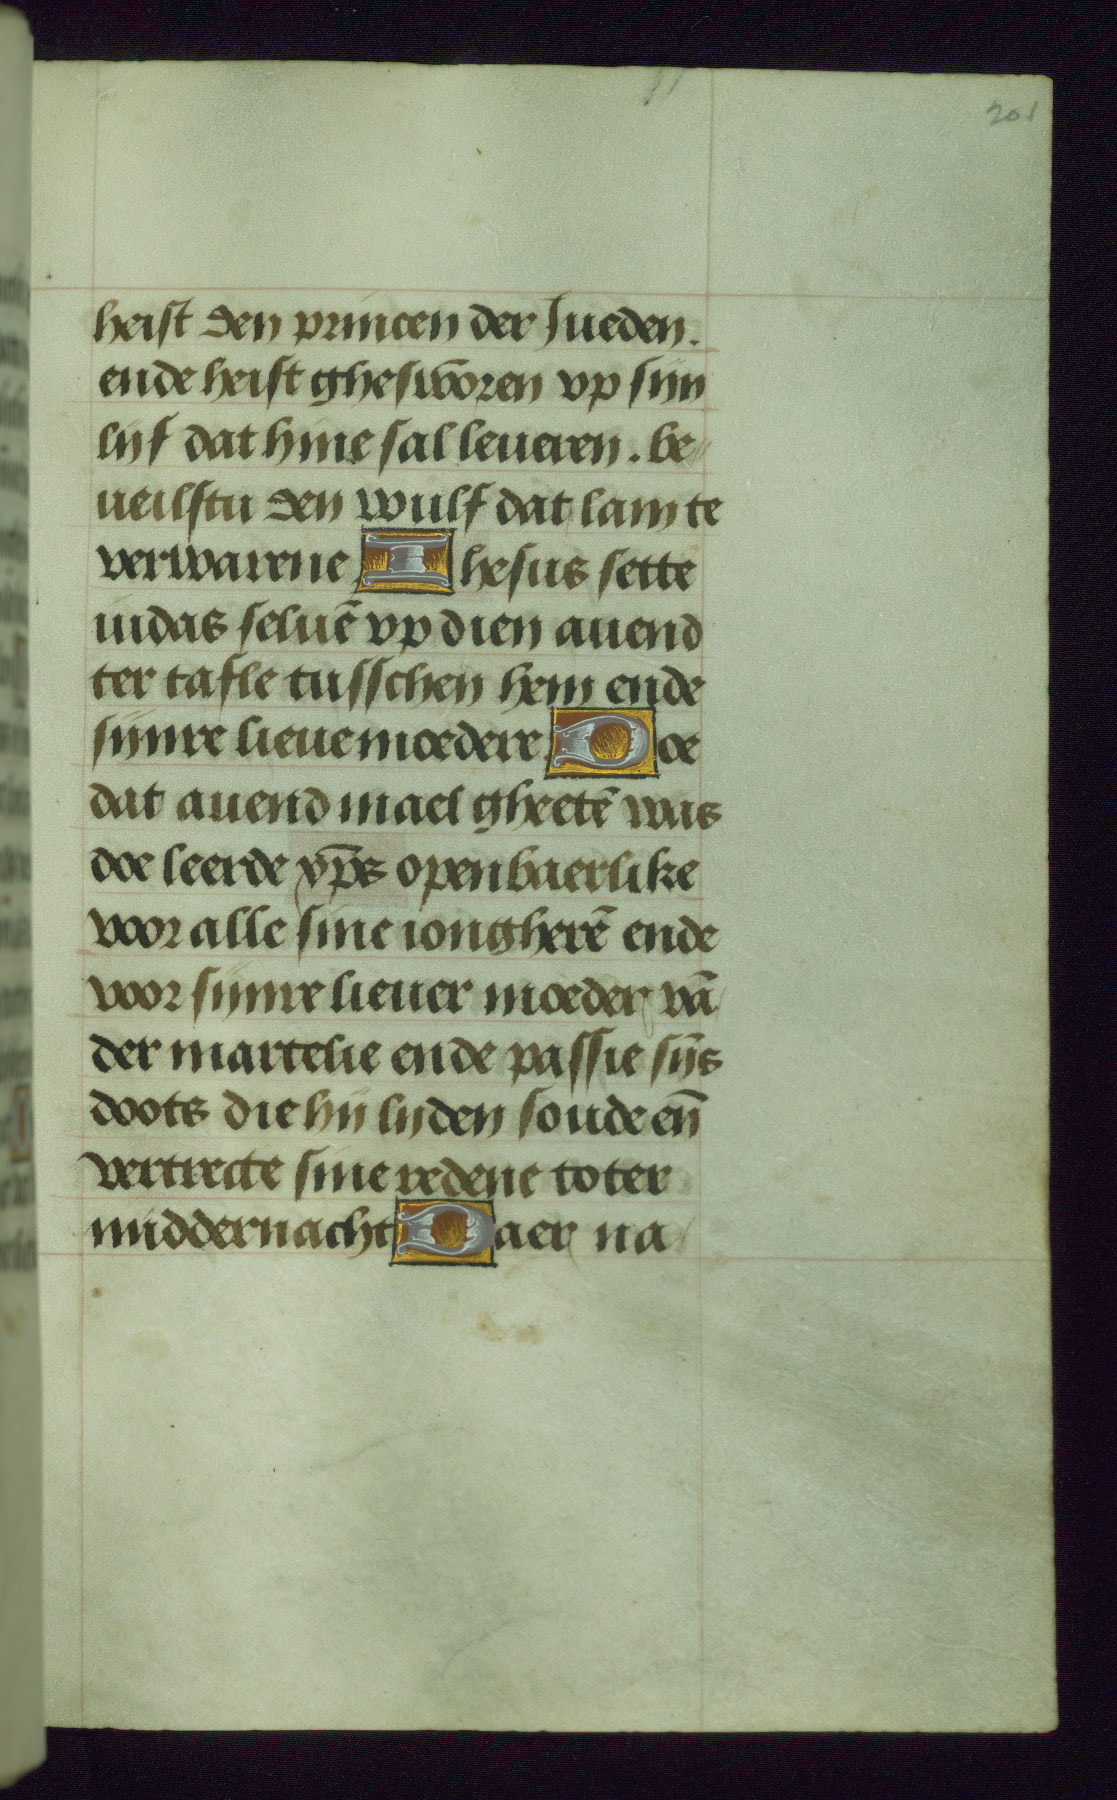 201
heist den princen der Jueden.
ende heist ghesworen vp sijn
lijf dat hine sal leueren. be
ueilstu den wulf dat lam te
verwarene Ihesus sette
iudas seluē vp dien auend
ter tafle tusschen hem ende
sijnre lieue moedere. Doe
dat auend mael gheetē was
doe leerde xp̄s openbaerlike
voor alle sine iongherē ende
voor sijnre lieuer moeder vā
der martelie ende passie sijs
doots die hij lijden soude eñ
vertrecte sine redene toter
middernacht Daer na